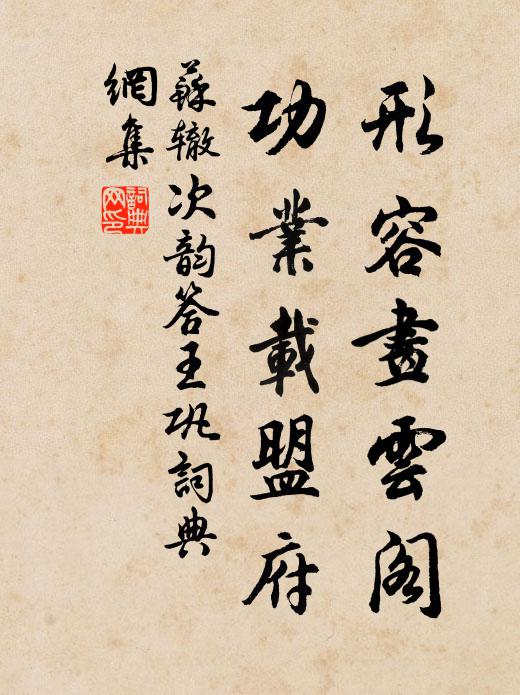 形容畫雲阁
功業載盟府
蘇辙次韵答王巩詞典
網集
詞典
网印